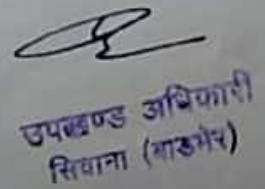 उपखण्ड अधिकारी
सिवाना (बाडमेर)